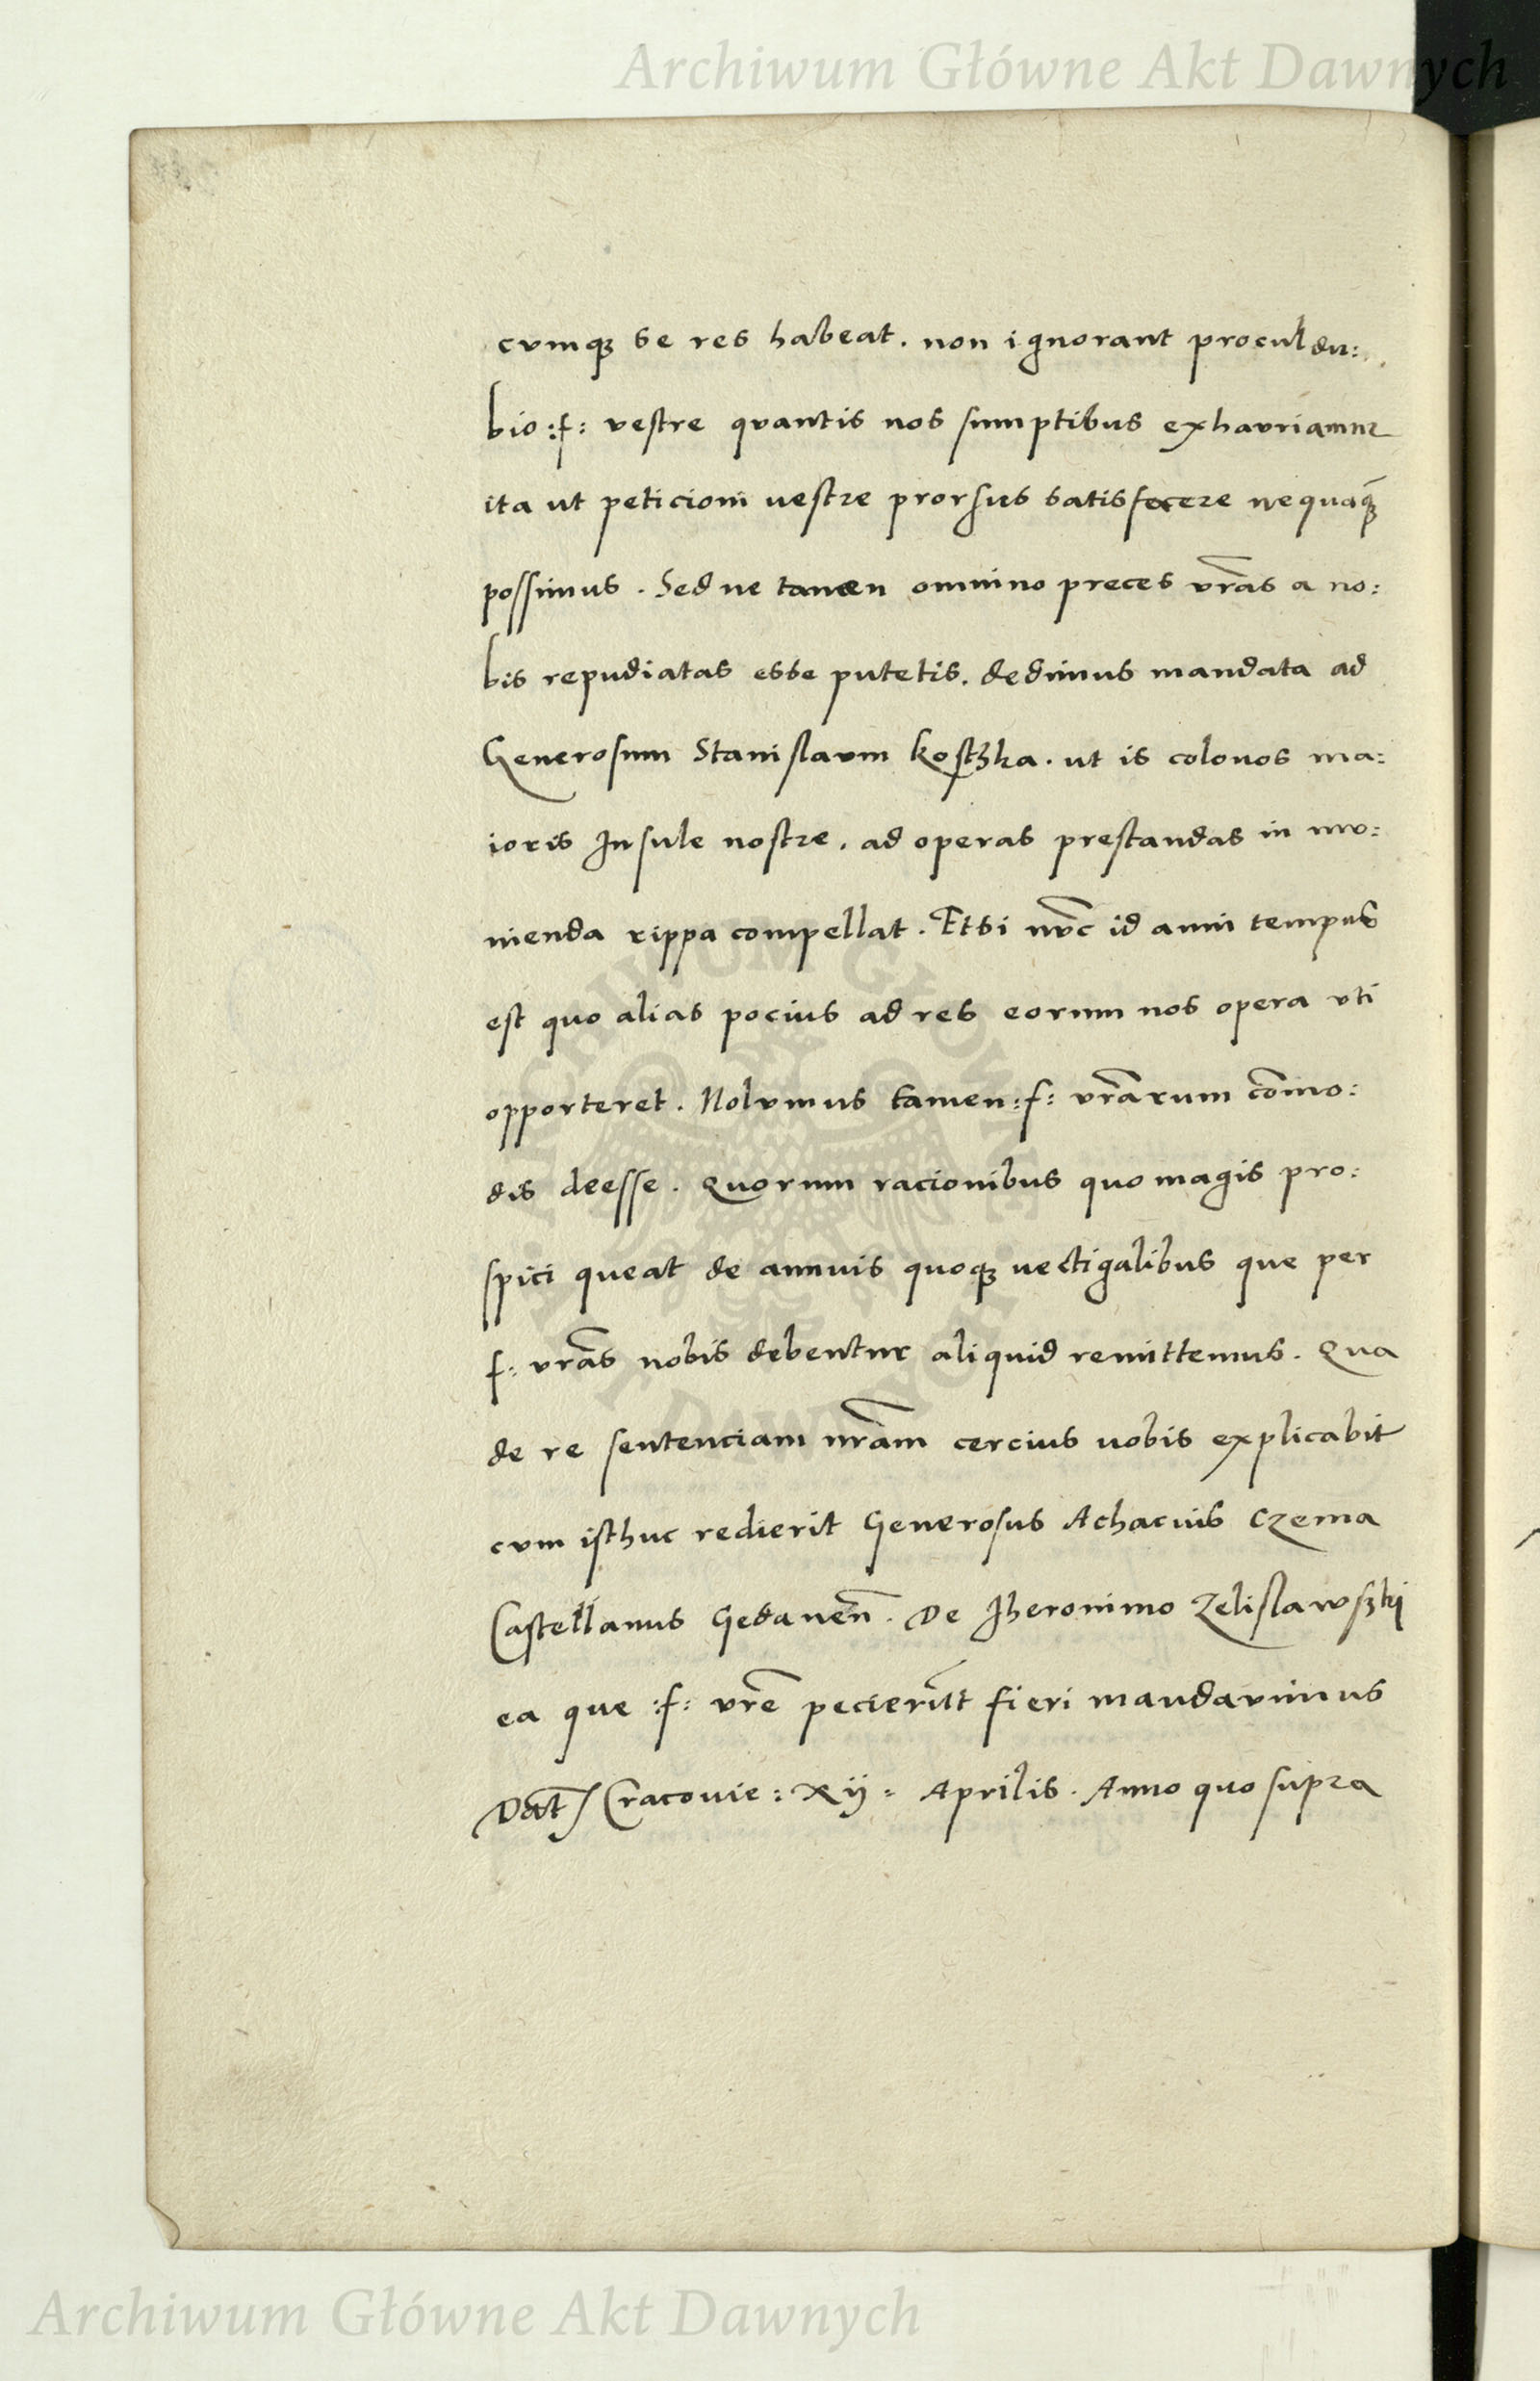 Archiwum Główne Akt Dawnych
cvmqꝫ se res habeat. non ignorant procul du:
bio :f: vestre qvantis nos sumptibus exhavriamur
ita ut peticioni vestre prorsus satisfacere nequaqꝫ̄
possimus. Sed ne tamen omnino preces vr̄as a no:
bis repudiatas esse putetis. dedimus mandata ad
Generosum Stanislavm kostzka. ut is colonos ma:
ioris Insule nostre. ad operas prestandas in mv:
nienda rippa compellat. Etsi nv̄c id anni tempus
est quo alias pocius ad res eorum nos opera vti
opporteret. Nolvmus tamen :f: vr̄arum com̄o:
dis deesse. Quorum racionibus quo magis pro:
spici queat de annvis quoqꝫ vectigalibus que per
f: vr̄as nobis debentur aliquid remittemus. Qua
de re sentenciam nr̄am cercius vobis explicabit
cvm isthuc redierit Generosus Achacius Czema
Castellanus Gedaneñ. De Iheronimo Zelislawszkij
ea que :f: vr̄e pecierint fieri mandavimus
Dat̄ Cracovie: xij: Aprilis. Anno quo supra
ARCHIWUM GŁÓWNE AKT DAWNYCH
Archiwum Główne Akt Dawnych